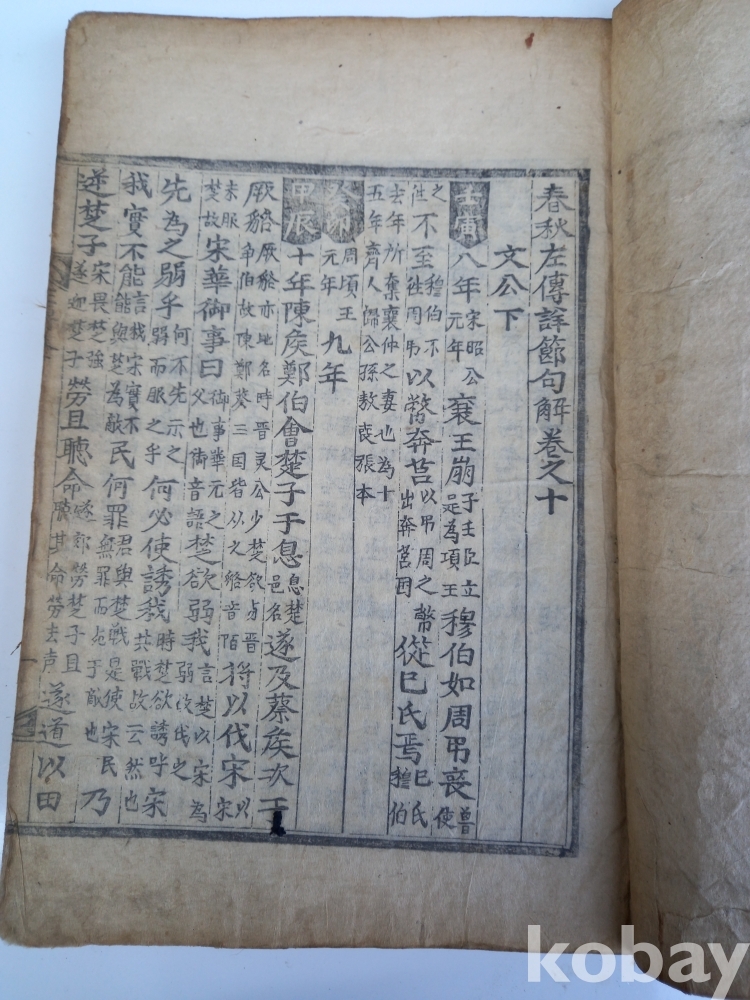 春秋左傳詳節句解卷之十
文公下
壬寅 八年 宋昭公元年 襄王崩 子壬臣立是為項王 穆伯如周弔喪 魯使
之往 不至 穆伯不往周弔 以幣奔莒 以弔周之幣出奔莒国 從巳氏焉 巳氏穆伯
去年所奪襄仲之妻也為十五年齊人歸公孫敖喪張本
癸卯 周頃王元年 九年
甲辰 十年陳侯鄭伯會楚子于息 息楚邑名 遂及蔡侯次于
厥貉 厥貉亦地名時晋灵公少楚欲与晋争伯故陳鄭蔡三国皆从之貉音陌 將以伐宋 以宋
未服楚故 宋華御事曰 御事華元之父也御音語 楚欲弱我 言楚以宋為弱故伐之
先為之弱乎 何不先示之弱而服之乎 何必使誘我 時楚欲誘呼宋共戰故云然也
我實不能 言我宋實不能與楚為敵 民何罪 君與楚戰是使宋民無罪而死于敵也 乃
逆楚子 宋畏楚強遂迎楚子 勞且聽命 遂郊勞楚子且聽其命勞去声 遂道以田
kobay